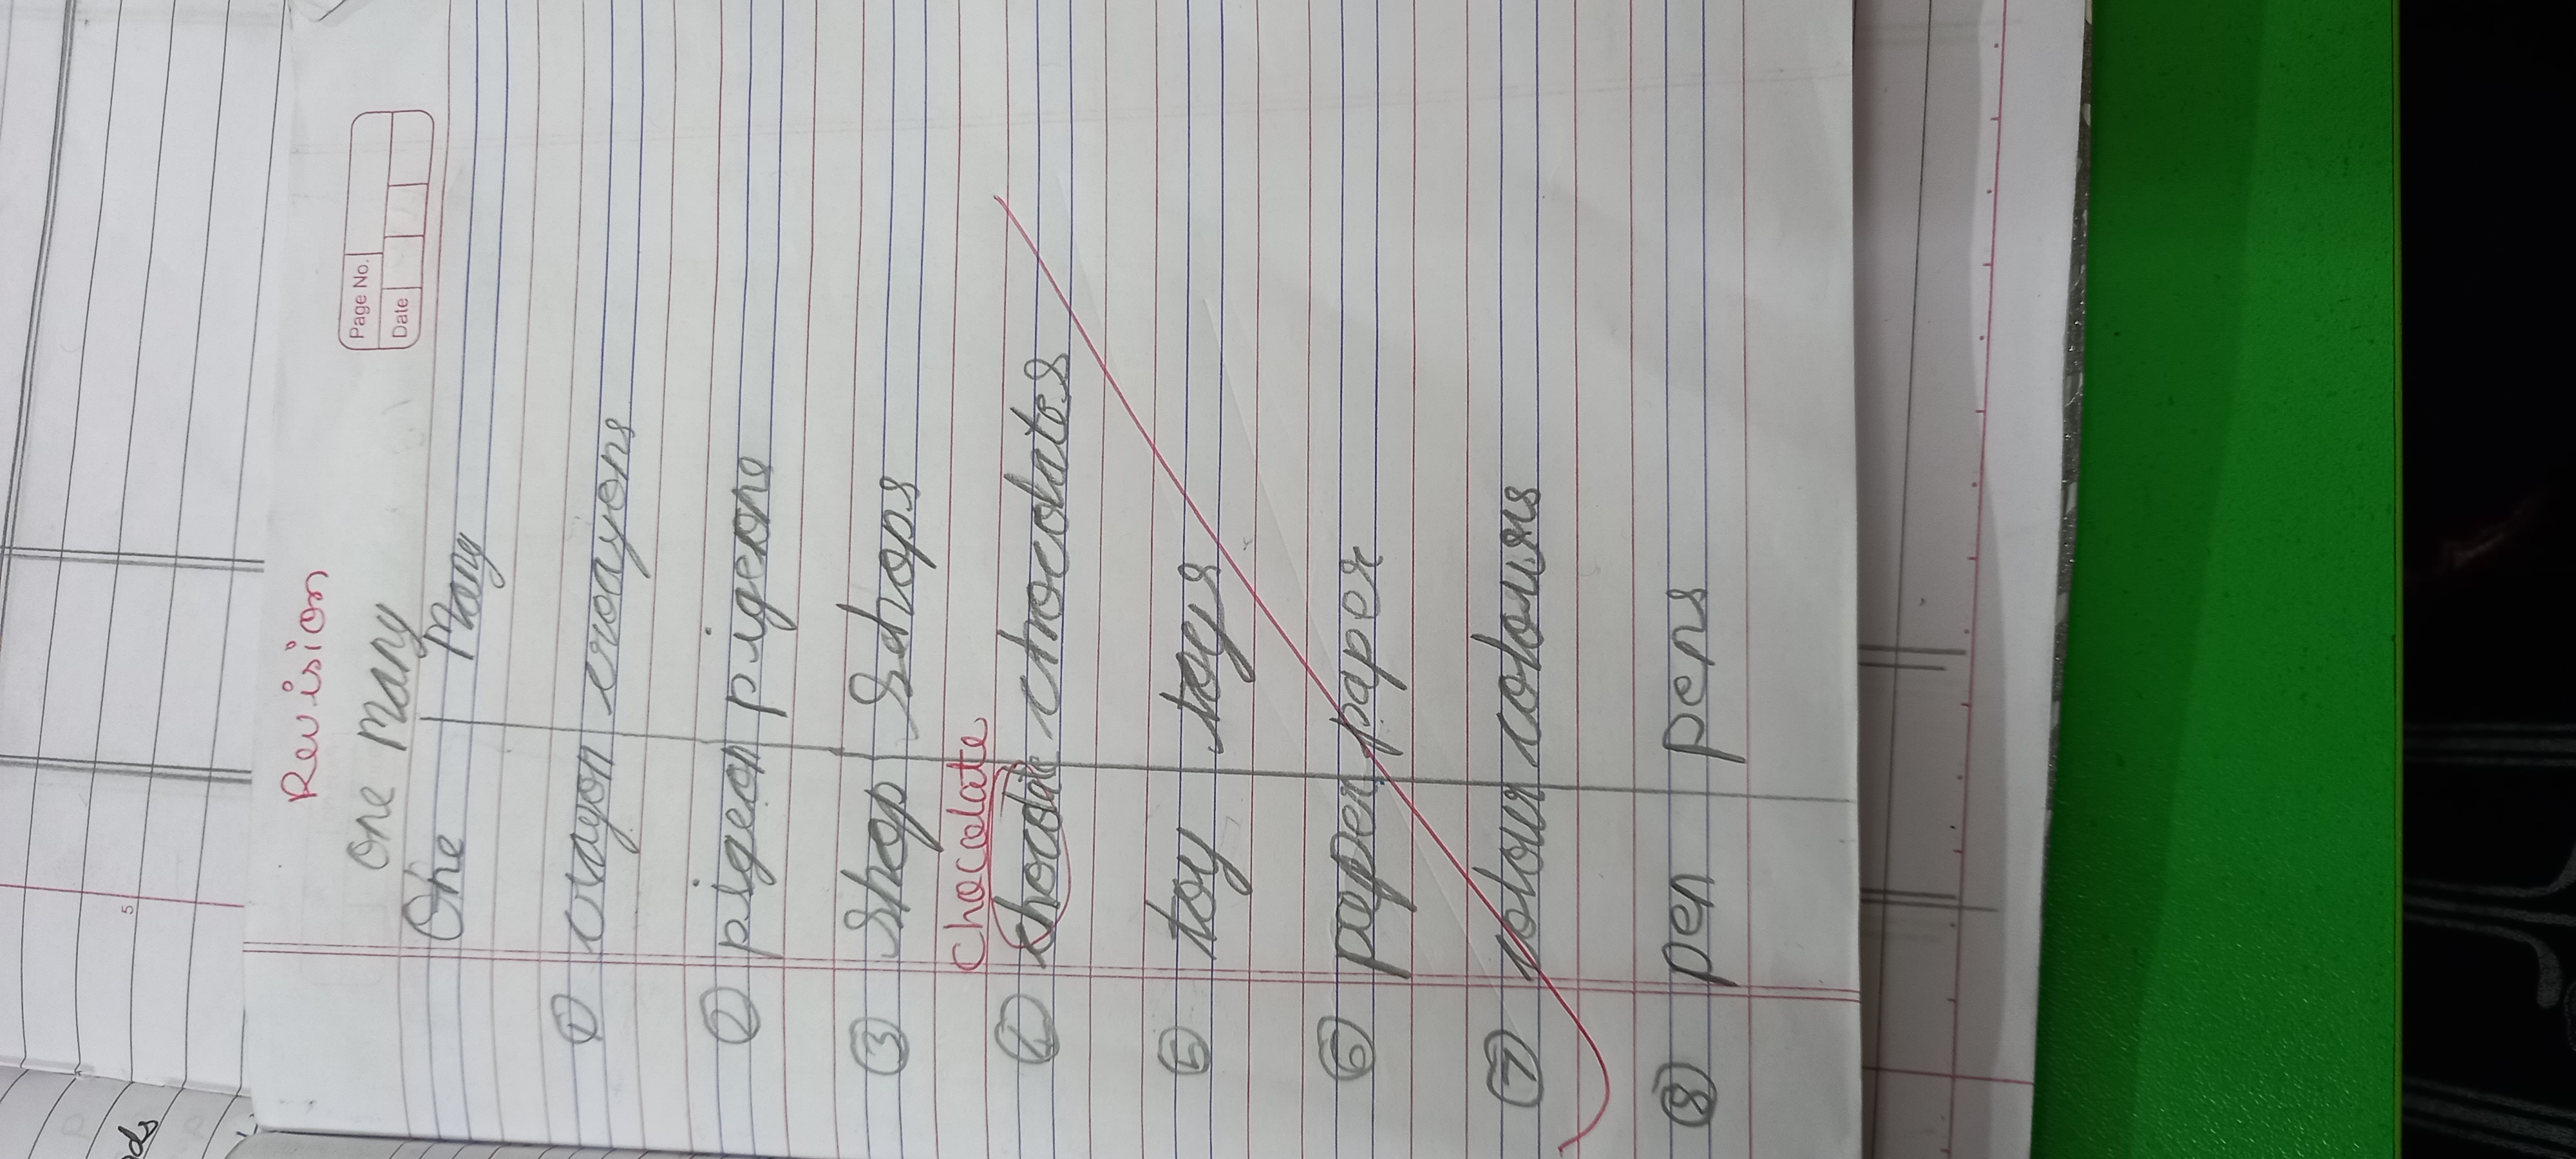 Revision
Page No.
Date
one many
One Many
① crayon crayons
② pigeon pigeons
③ shop shops
Chocolate
④ chocolate chocolates
⑤ toy toys
⑥ paper paper
⑦ colour colours
⑧ pen pens
5